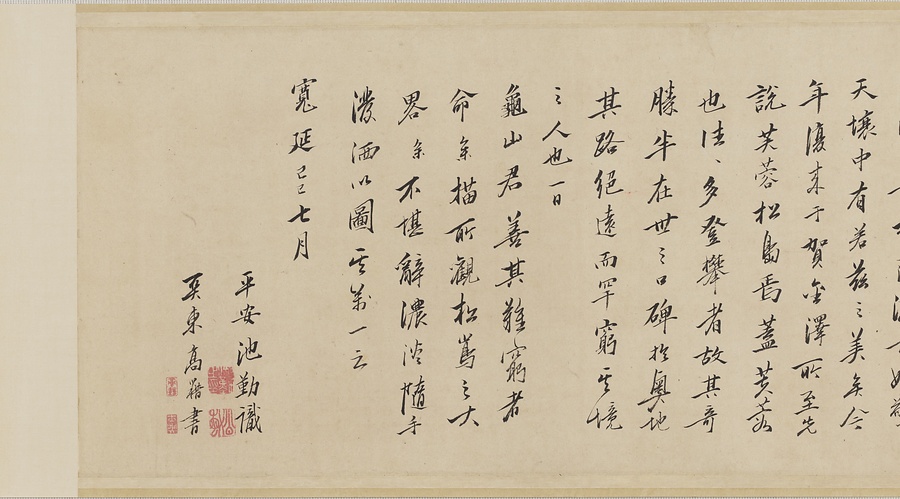 天壤中有若茲之美矣今
年復来于賀金澤所至先
說芙蓉松島焉蓋芙蓉
也往、多登攀者故其哥
勝半在世之口碑於奧地
其路絕遠而罕窮其境
之人也一日
龜山君善其難窮者
命余描所觀松嶌之大
畧余不堪辭濃淡隨手
潑洒以圖其萬一云
寬延己巳七月
平安池勤識
東高
書